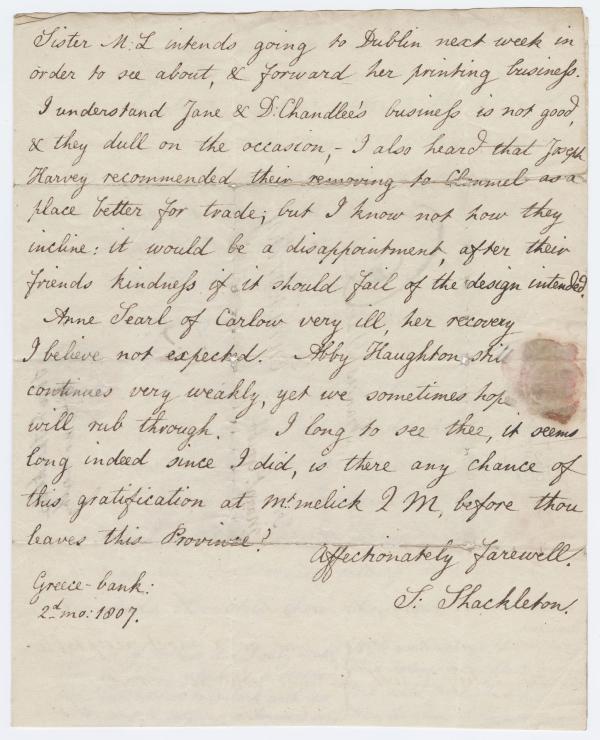 Sister M:L intends going to Dublin next week in
order to see about, & forward her printing business.
I understand Jane & D: Chandlee's business is not good,
& they dull on the occasion,- I also heard that Joseph
Harvey recommended their removing to Clonmel as a
place better for trade; but I know not how they
incline: it would be a disappointment, after their
friends kindness if it should fail of the design intended.
Anne Searl of Carlow very ill, her recovery
I believe not expected. Abby Haughton still
continues very weakly, yet we sometimes hope
will rub through. I long to see thee, it seems
long indeed since I did, is there any chance of
this gratification at Mt. melick Q M, before thou
leaves this Province?
Affectionately farewell.
S: Shackleton.
Greece-bank:
2d. mo: 1807.